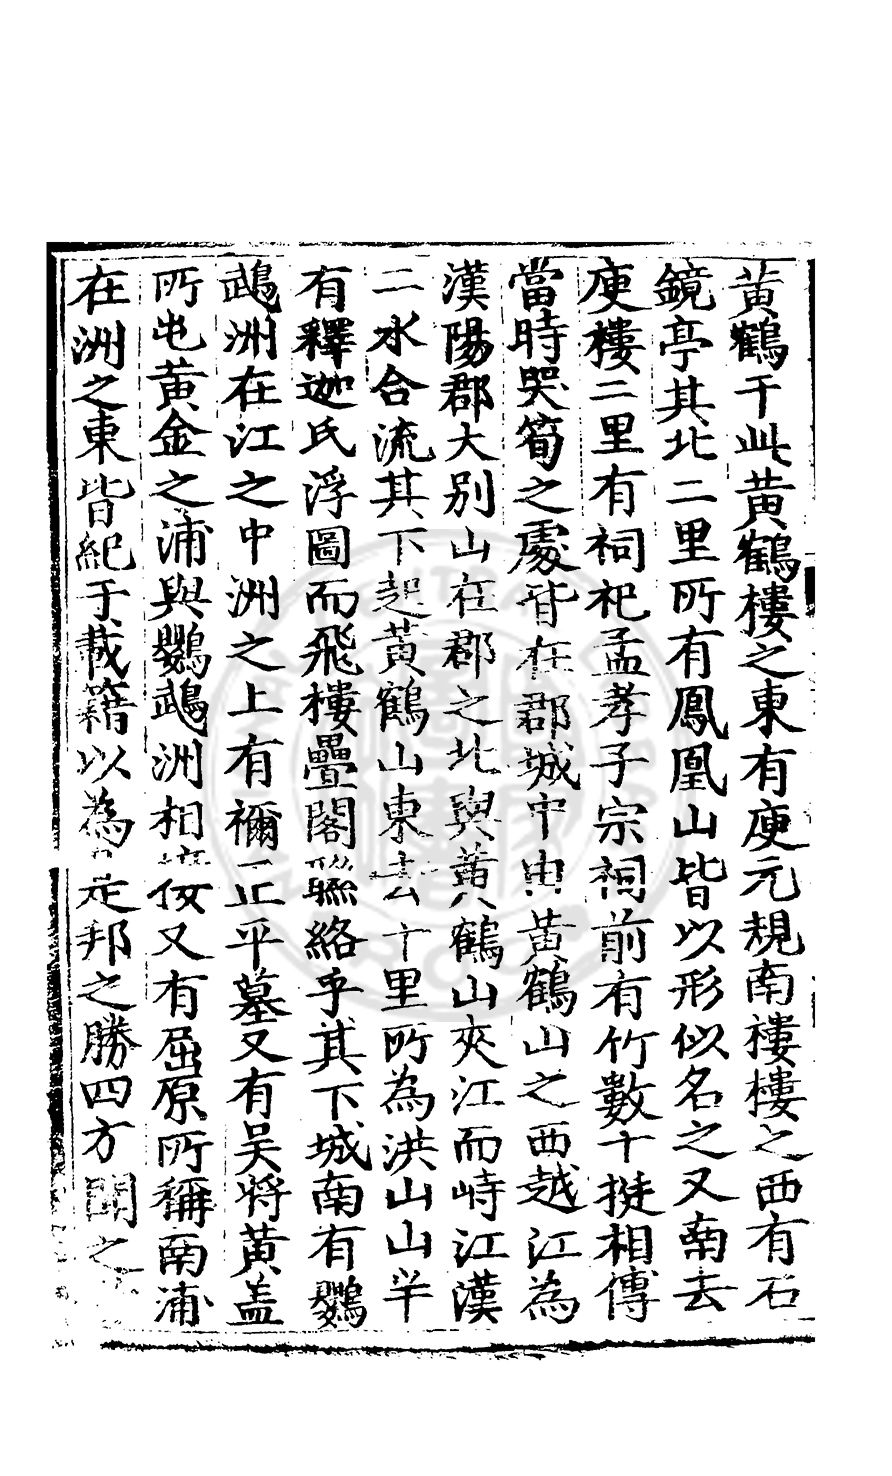 黃鶴于此黃鶴樓之東有庾元規南樓樓之西有石
鏡亭其北二里所有鳳凰山皆以形似名之又南去
庾樓二里有祠祀孟孝子宗祠前有竹數十挺相傳
當時哭筍之處皆在郡城中由黃鶴山之西越江為
漢陽郡大別山在郡之北與黃鶴山夾江而峙江漢
二水合流其下起黃鶴山東去十里所為洪山山半
有釋迦氏浮圖而飛樓疊閣聯絡乎其下城南有鸚
鵡洲在江之中洲之上有禰正平墓又有吳將黃盖
所屯黃金之浦與鸚鵡洲相接又有屈原所稱南浦
在洲之東皆紀于載籍以為是邦之勝四方聞之